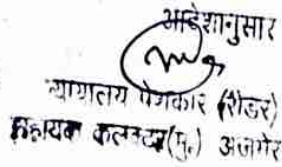 आदेशानुसार
न्यायालय पेशकार (रीडर)
सहायक कलक्टर (मु.) अजमेर